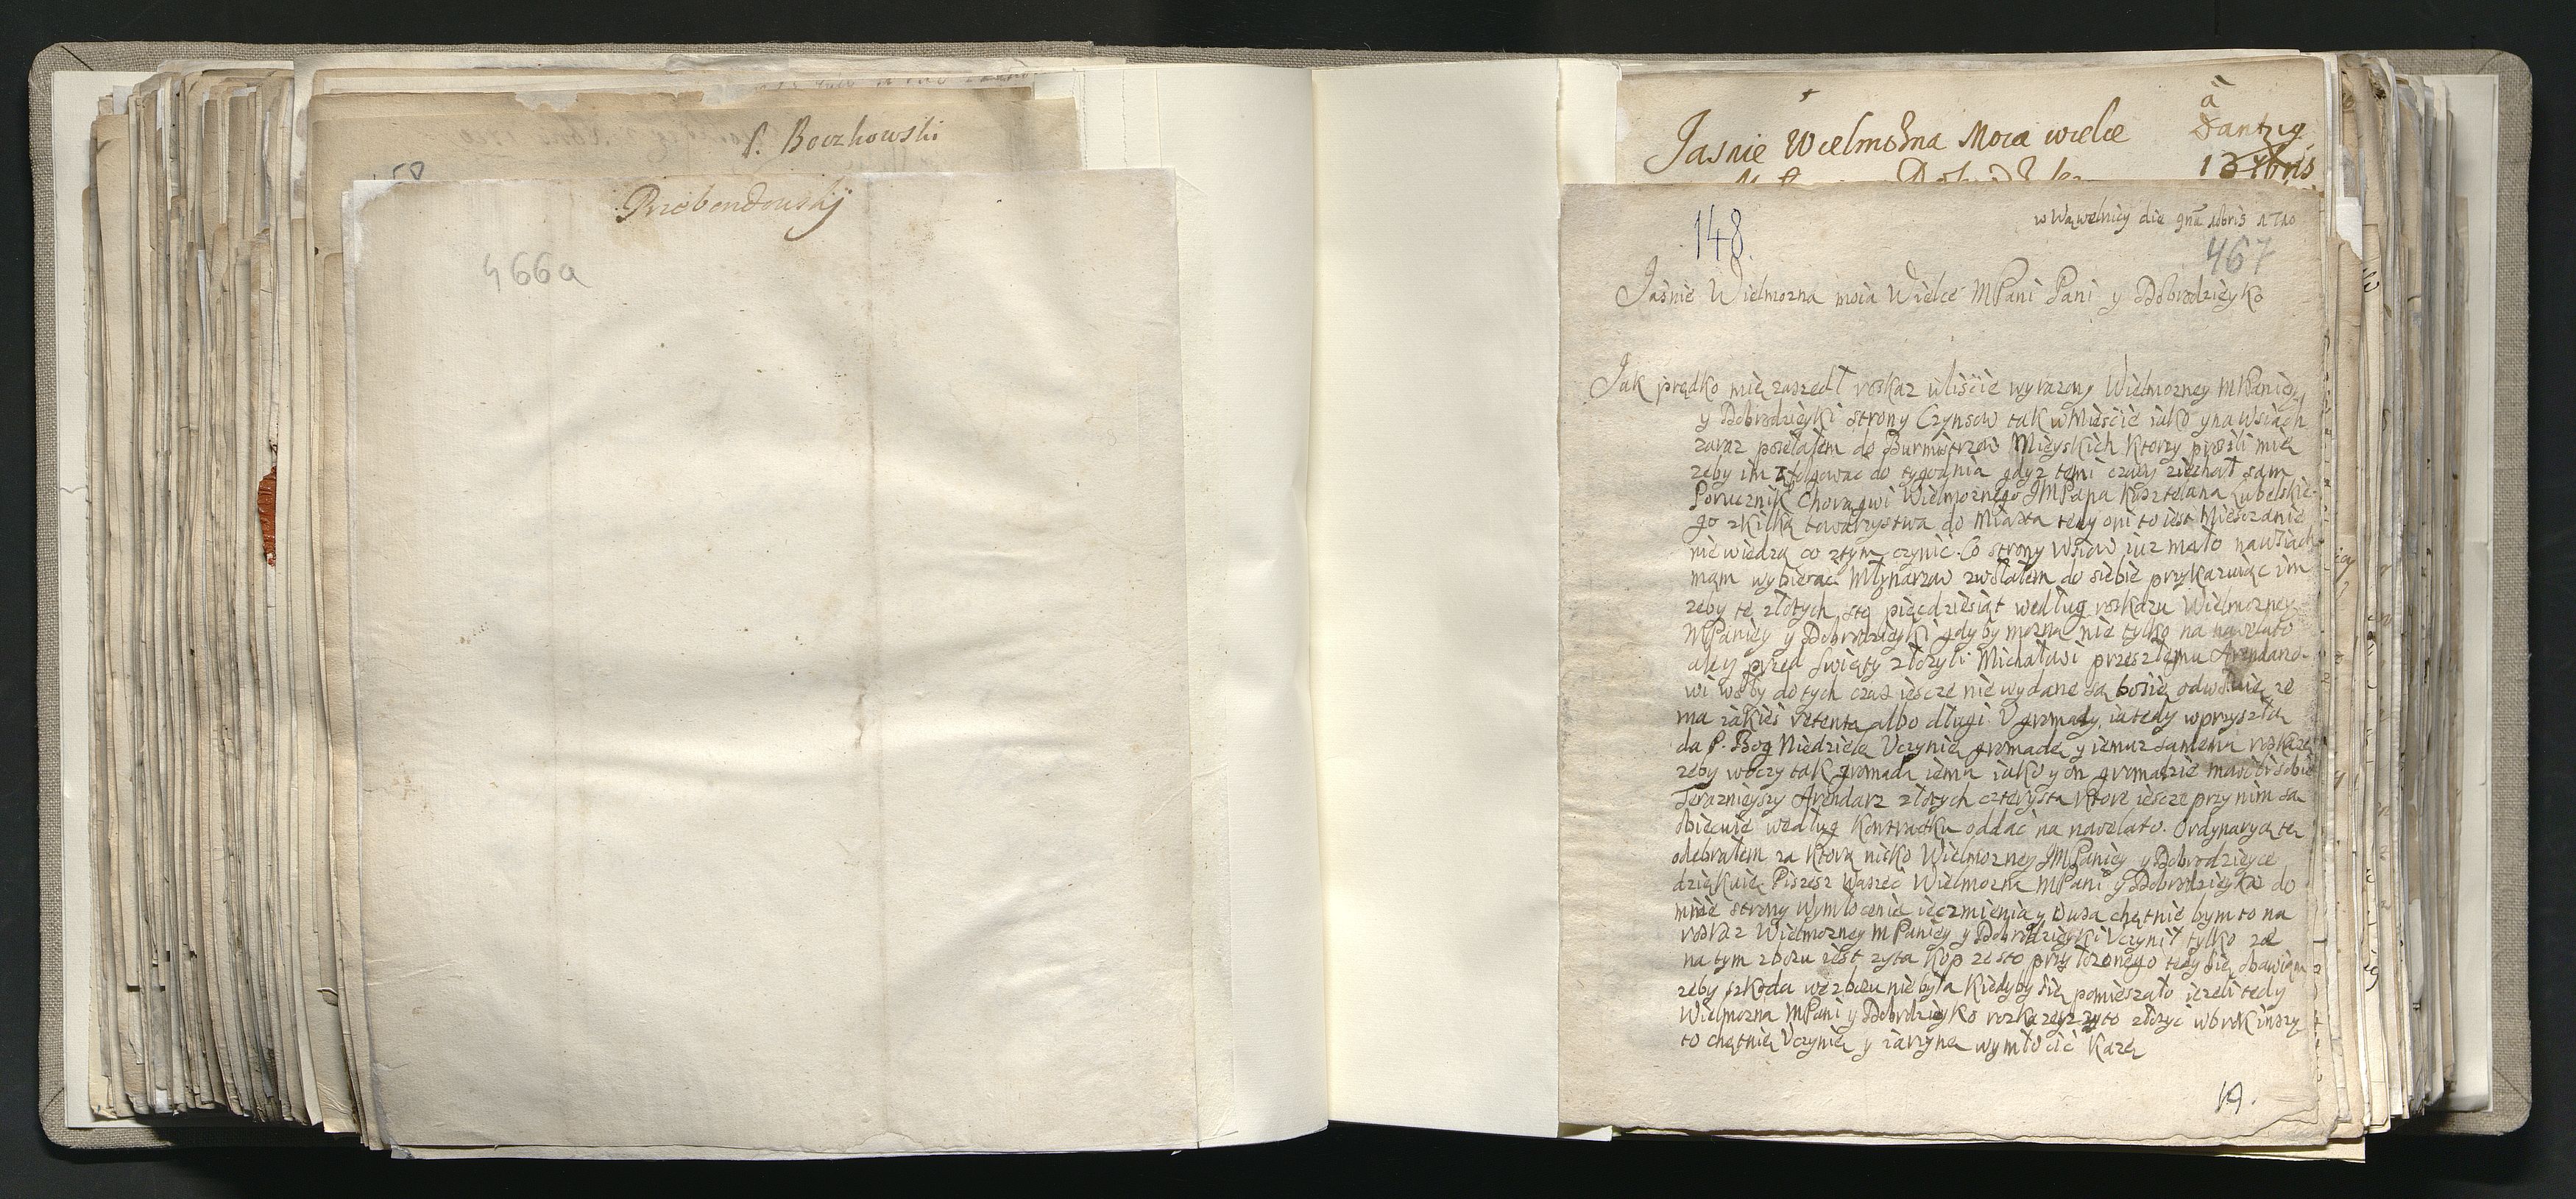 P. Boczkowski
58
Przebendowskÿ
466a
Jasnie Wielmozna Moia wielce
à
Dantzig
13 Xbris
148.
w Wąwelnicy die 9na Xbris 1710
467
Jaśnie Wielmozna moia Wielce MPani Pani y Dobrodzieyko
Jak prędko mię zaszedł roskaz wliście wyrazony Wielmozney MPaniey
y Dobrodzieyki strony Czynsow tak wMieście iako ynawsiach
zaraz posełałem do Burmistrzow Mieyskich ktorzy prosili mię
zeby im sfolgować do tygodnia gdyz temi czasy ziechał sam
Porucznik Chorągwi Wielmoznego JMPana Kasztelana Lubelskie-
go zkilką towarzystwa do Miasta tedy oni to iest Mieszczanie
nie wiedzą co ztym czynić. Co strony Wsiow iuz mało nawsiach
mąm wybierać Młynarzow zwołałem do siebie przykazuiąc im
zeby te złotych sto pięcdziesiąt według roskazu Wielmozney
MPaniey y Dobrodzieyki gdyby mozna nie tylko na nowelato
aley przed Swięty złozyli Michałowi przeszłemu Arendarzo-
wi woły do tych czas iescze nie wydane są bosię odwołuię ze
ma iakieś retenta albo długi U gromady, ia tedy wprzyszłą
da P. Bog Niedziele Uczynię gromadę y iemuz samemu roskazę
zeby woczy tak gromada iemu iako y on gromadzie mowili sobie
Teraznieyszy Arendarz złotych czterysta ktore iescze przy nim są
obiecuie według Kontraktu oddać na nowelato. Ordynaryą tę
odebrałem za ktorą nisko Wielmozney JMPaniey y Dobrodzieyce
dziękuię Piszesz Waszeć Wielmozna MPani y Dobrodzieyko do
mnie strony wymłocenia ięczmienia y Owsa chętnie bym to na
roskaz Wielmozney mPaniey y Dobrodzieyki Uczynił tylko ze
na tym zbozu iest zyta Kop ze sto przyłozonego tedy się obawiąm
zeby szkoda wezbozu nie była Kiedyby się pomieszało iezeli tedy
Wielmozna MPani y Dobrodzieyko rozkazesz zyto złozyć wbrok inszy
to chętnię Uczynię y iarzynę wymłocić Kazę